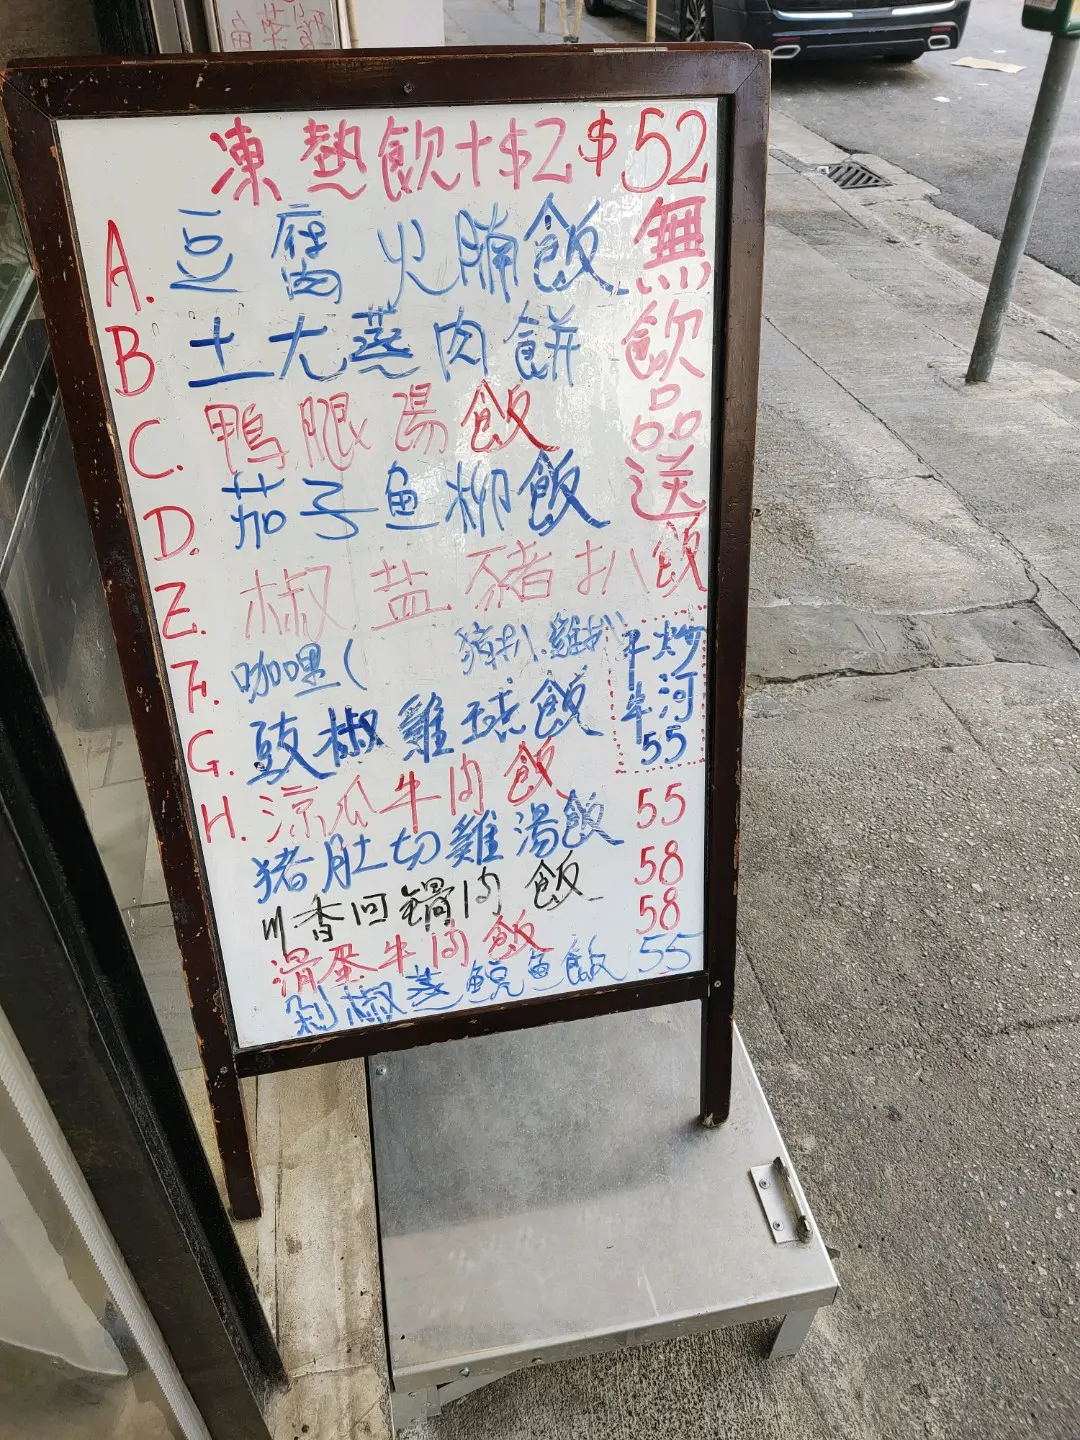 凍熱飲+$2 $52
A. 豆腐火腩飯
B 土尤蒸肉餅
C. 鴨腿湯飯
D. 茄子魚柳飯
E. 椒盐豬扒飯
F. 咖哩( 豬扒、雞扒
G. 豉椒雞球飯
H. 涼瓜牛肉飯
猪肚切雞湯飯 55
川香回鍋肉飯 58
滑蛋牛肉飯 58
剁椒蒸鯇魚飯 55
無飲品送
干炒
牛河
55